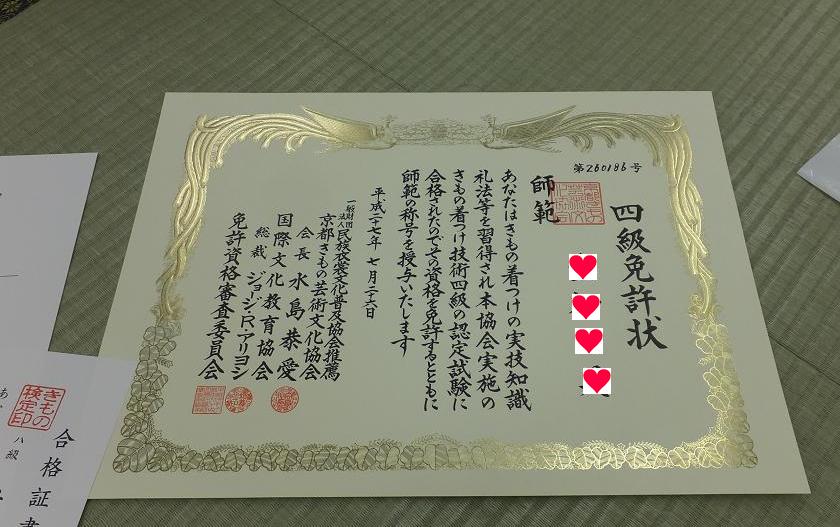 第260186号
四級免許状
師範
あなたはきもの着つけの実技知識
礼法等を習得され本協会実施の
きもの着つけ技術四級の認定試験に
合格されたのでその資格を免許するとともに
師範の称号を授与いたします
平成二十七年七月二十六日
一般財団法人民族衣裳文化普及協会推薦
京都きもの芸術文化協会
会長 水島恭愛
国際文化教育協会
総裁 ジョージ・R・アリヨシ
免許資格審査委員会
きもの検定印
合格証書
八級